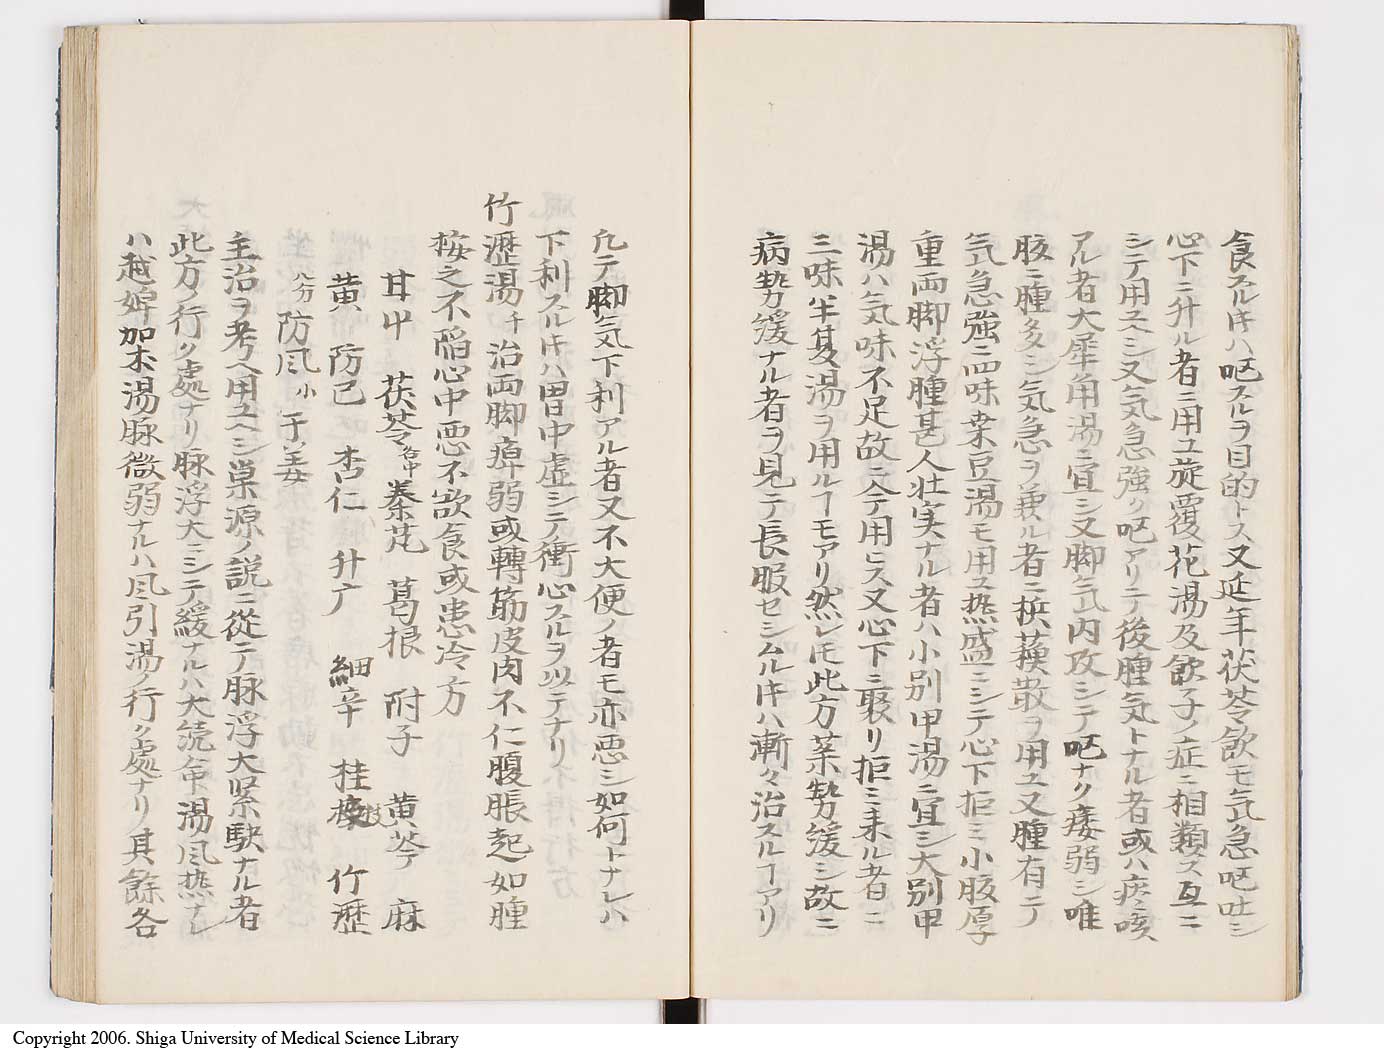 食スル片ハ呕スルヲ目的トス又延年茯苓飲モ気急呕吐シ
心下ニ升ル者ニ用ユ旋覆花湯及飲子ノ症ニ相類ス互ニ
シテ用ユヘシ又気急強ク呕アリテ後腫気トナル者或ハ痰咳
アル者大犀角湯ニ宜シ又脚気内攻シテ呕ナク痿弱シ唯
腹ニ腫多シ気急ヲ兼ル者ニ檳蘓散ヲ用ユ又腫有テ
気急強ニ四味桒豆湯モ用ユ熱盛ニシテ心下拒ミ小腹厚
重両脚浮腫甚人壮実ナル者ハ小別甲湯ニ宜シ大別甲
湯ハ気味不足故ニ今用ヒス又心下ニ聚リ拒ミ来ル者ニ
三味半夏湯ヲ用ルヿモアリ然レ𪜈此方薬勢緩シ故ニ
病勢緩ナル者ヲ見テ長服セシムル片ハ漸々治スルヿアリ
凢テ脚気下利アル者又不大便ノ者モ亦悪シ如何トナレハ
下利スル片ハ胃中虚シテ衝心スルヲ以テナリ
竹瀝湯 千 治両脚痺弱或轉筋皮肉不仁腹脹起如腫
按之不陥心中悪不欲食或患冷方
甘艸 茯苓 各中 秦芃 葛根 附子 黄芩 麻
黄 防已 杏仁 升广 細辛 桂枝 竹瀝
八分 防風 小 干姜
主治ヲ考ヘ用ユヘシ巣源ノ説ニ從テ脉浮大緊駃ナル者
此方ノ行ク處ナリ脉浮大ニシテ緩ナルハ大続命湯風熱ナレ
ハ越婢加朮湯脉微弱ナルハ風引湯ノ行ク處ナリ其餘各
Copyright 2006. Shiga University of Medical Science Library